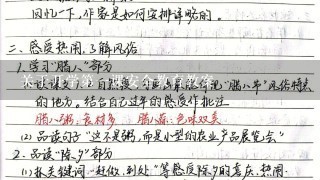 回忆一下,作家是如何安排详略的。
二、感受热闹,了解风俗
1. 学习“腊八”部分
的地方。结合自己过年的感受作批注
腊八粥,食材多 腊八蒜:色味双美
(2) 品读句子“这不是粥,而是小型的农业产品展览会”
2. 品读“除夕”部分
(1) 抓关键词,“赶做、到处”等感受除夕的喜庆、热闹